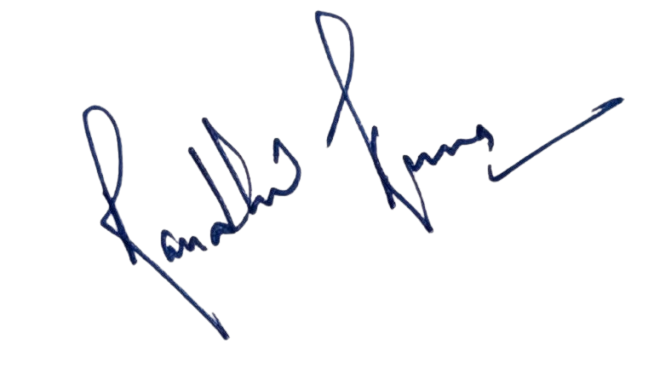 Randhir Kumar